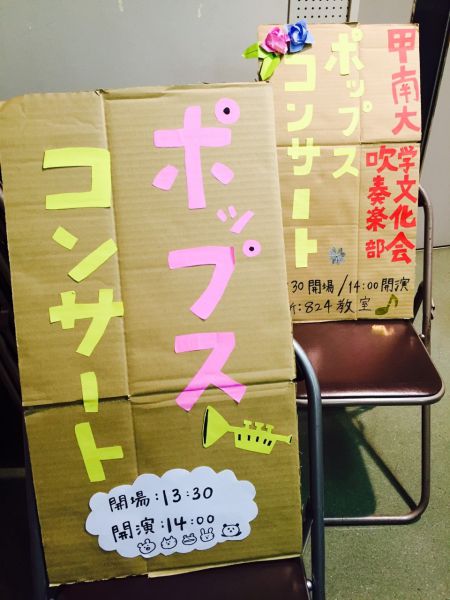 ポップス
コンサート
開場:13:30
開演:14:00
甲南大
学文化会
吹奏楽部
ポップス
コンサート
30開場/14:00開演
所:824教室